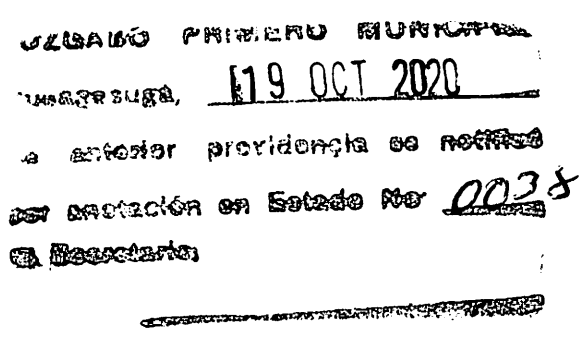 JUZGADO PRIMERO MUNICIPAL
Fusagasugá, 19 OCT 2020
La anterior providencia se notificó
por anotación en Estado No 0038
El Secretario